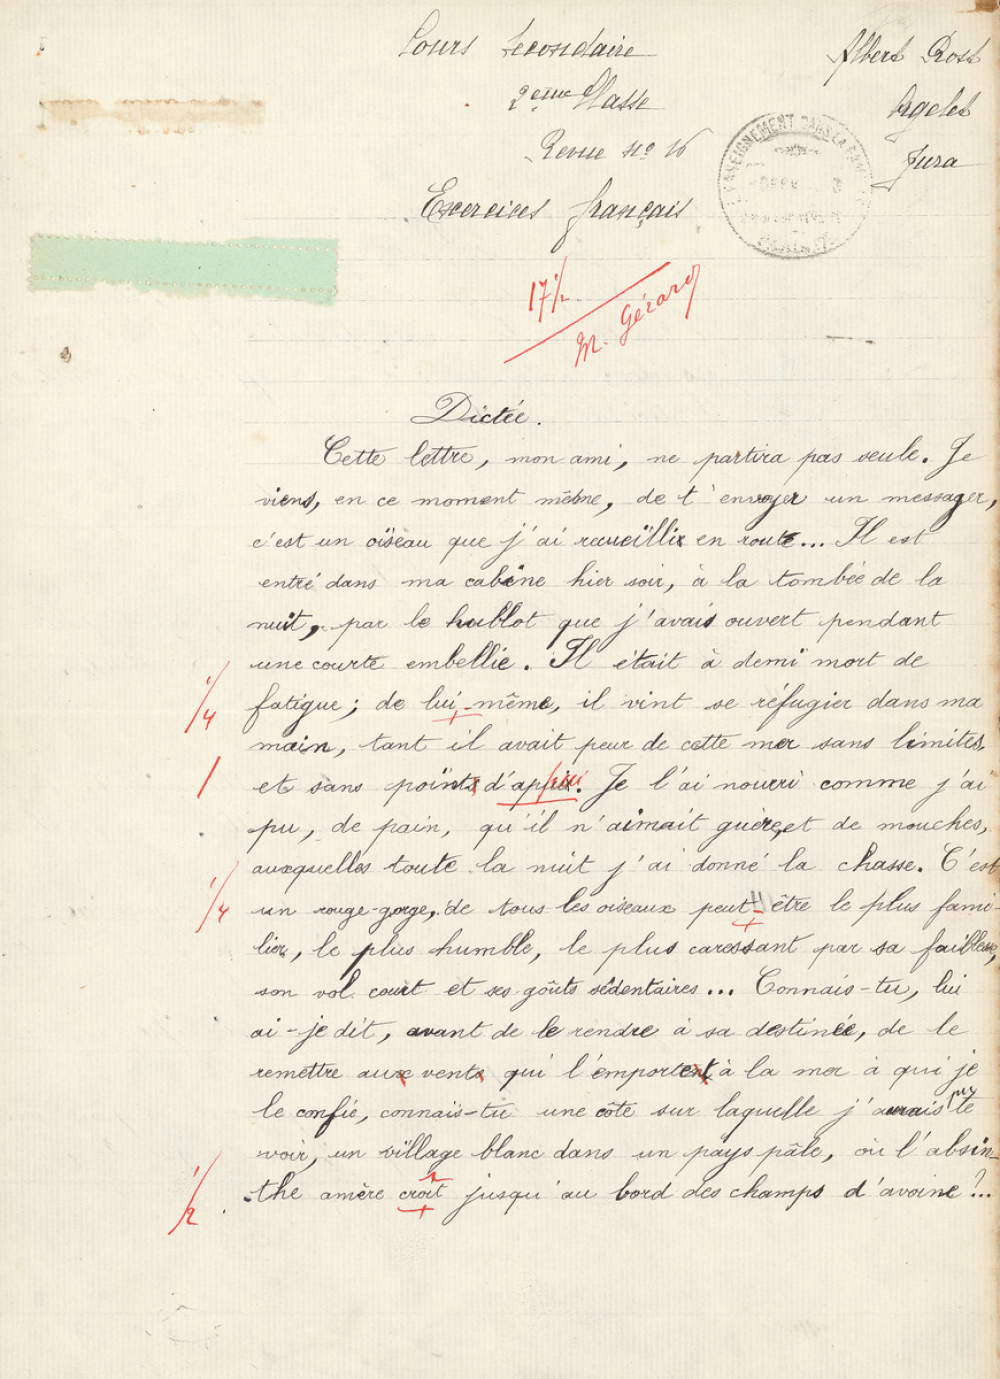 Cours secondaire
Albert Rost
2eme Classe
Agelet
Revue No 16
Jura
ENSEIGNEMENT DANS LA
Exercices français
17 1/2
M. Gérard
Dictée.
Cette lettre, mon ami, ne partira pas seule. Je
viens, en ce moment même, de t'envoyer un messager,
c'est un oiseau que j'ai recueillir en route... Il est
entré dans ma cabine hier soir, à la tombée de la
nuit, par le hublot que j'avais ouvert pendant
une courte embellie. Il était à demi mort de
1/4 fatigue; de lui-même, il vint se réfugier dans ma
main, tant il avait peur de cette mer sans limites
1 et sans points d'appui. Je l'ai nourri comme j'ai
pu, de pain, qu'il n'aimait guère, et de mouches,
auxquelles toute la nuit j'ai donné la chasse. C'est
1/4 un rouge-gorge, de tous les oiseaux peut-être le plus fami-
lier, le plus humble, le plus caressant par sa faiblesse,
son vol court et ses goûts sédentaires... Connais-tu, lui
ai-je dit, avant de le rendre à sa destinée, de le
remettre aux vents qui l'emportent à la mer à qui je
le confie, connais-tu une côte sur laquelle j'aurais pu te
voir, un village blanc dans un pays pâle, où l'absin-
1/2 the amère croit jusqu'au bord des champs d'avoine?..